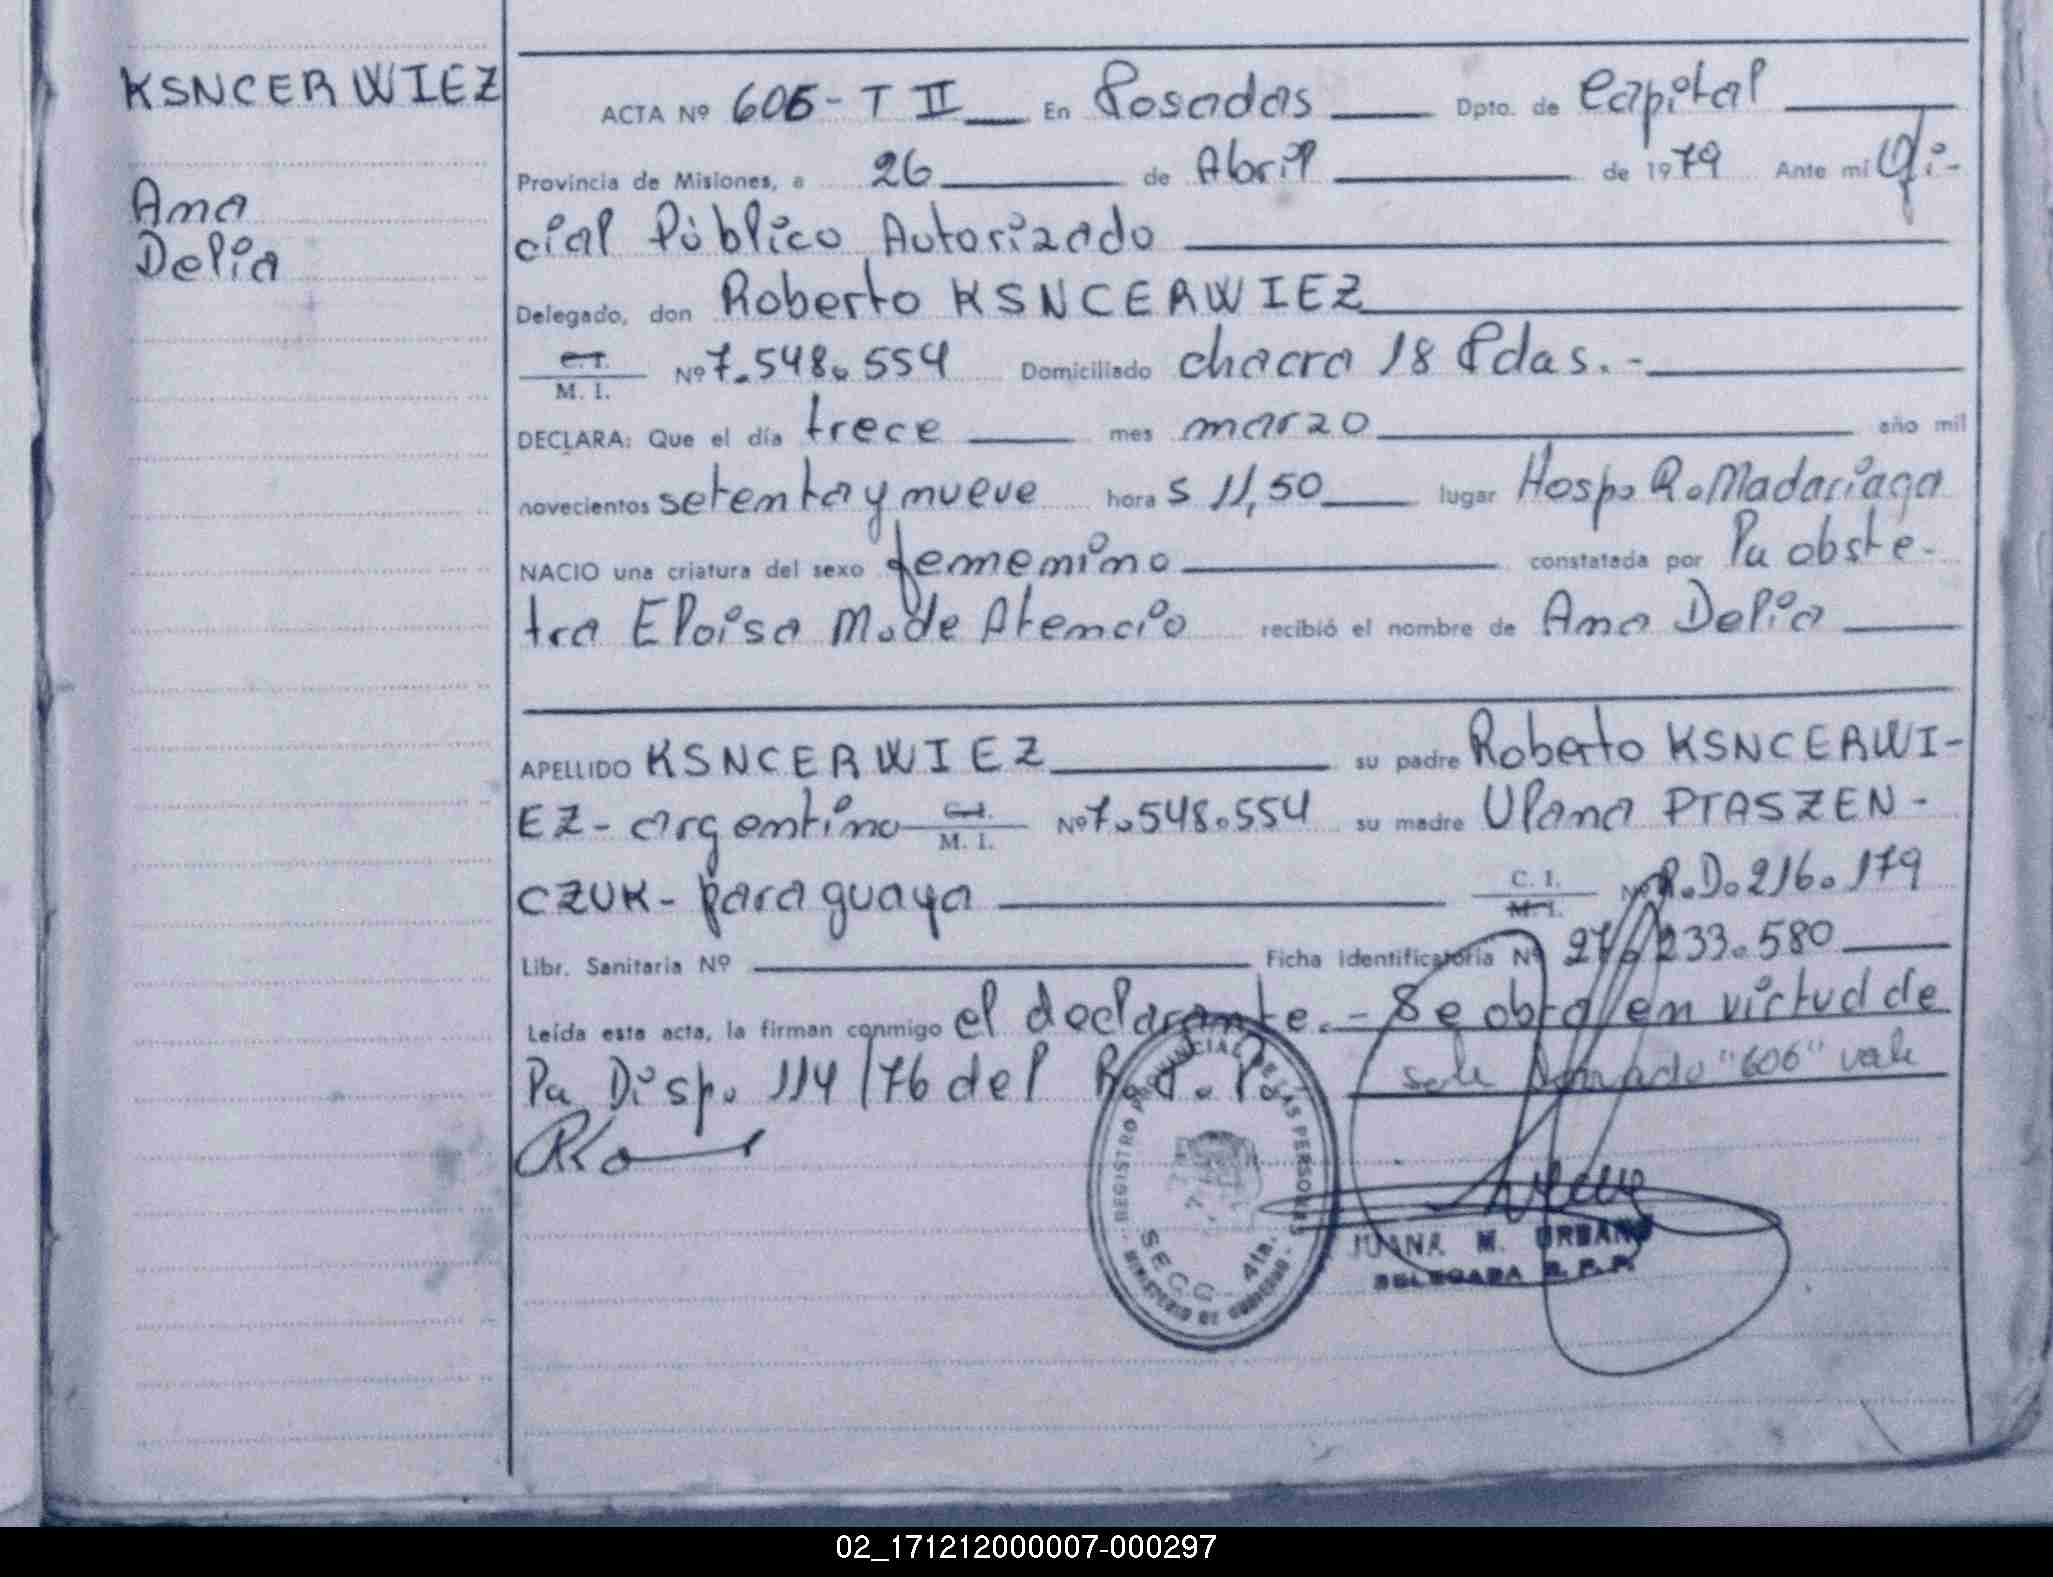 KSNCERWIEZ
Ana
Delia
ACTA Nº 606 - T II En Posadas Dpto. de Capital
Provincia de Misiones, a 26 de Abril de 1979 Ante mi Ofi-
cial Público Autorizado
Delegado, don Roberto KSNCERWIEZ
C. I.
M. I. Nº 7.548.554 Domiciliado chacra 18 Pdas. -
DECLARA: Que el día trece mes marzo año mil
novecientos setenta y nueve hora s 11,50 lugar Hosp. R. Madariaga
NACIO una criatura del sexo femenino constatada por la obste-
tra Eloisa M. de Atencio recibió el nombre de Ana Delia
APELLIDO KSNCERWIEZ su padre Roberto KSNCERWI-
EZ - argentino C. I. M. I. Nº 7.548.554 su madre Ulana PTASZEN-
CZUK - paraguaya C. I. M. I. Nº R.D. 216.179
Libr. Sanitaria Nº Ficha Identificatoria Nº 27/233.580
Leída esta acta, la firman conmigo el declarante. - Se obra en virtud de
la Disp. 114/76 del R. P.
"606" vale
REGISTRO PROVINCIAL DE LAS PERSONAS
SECC. 4ta.
MINISTERIO DE GOBIERNO
JUANA M. URBANO
DELEGADA R. P. P.
02_171212000007-000297